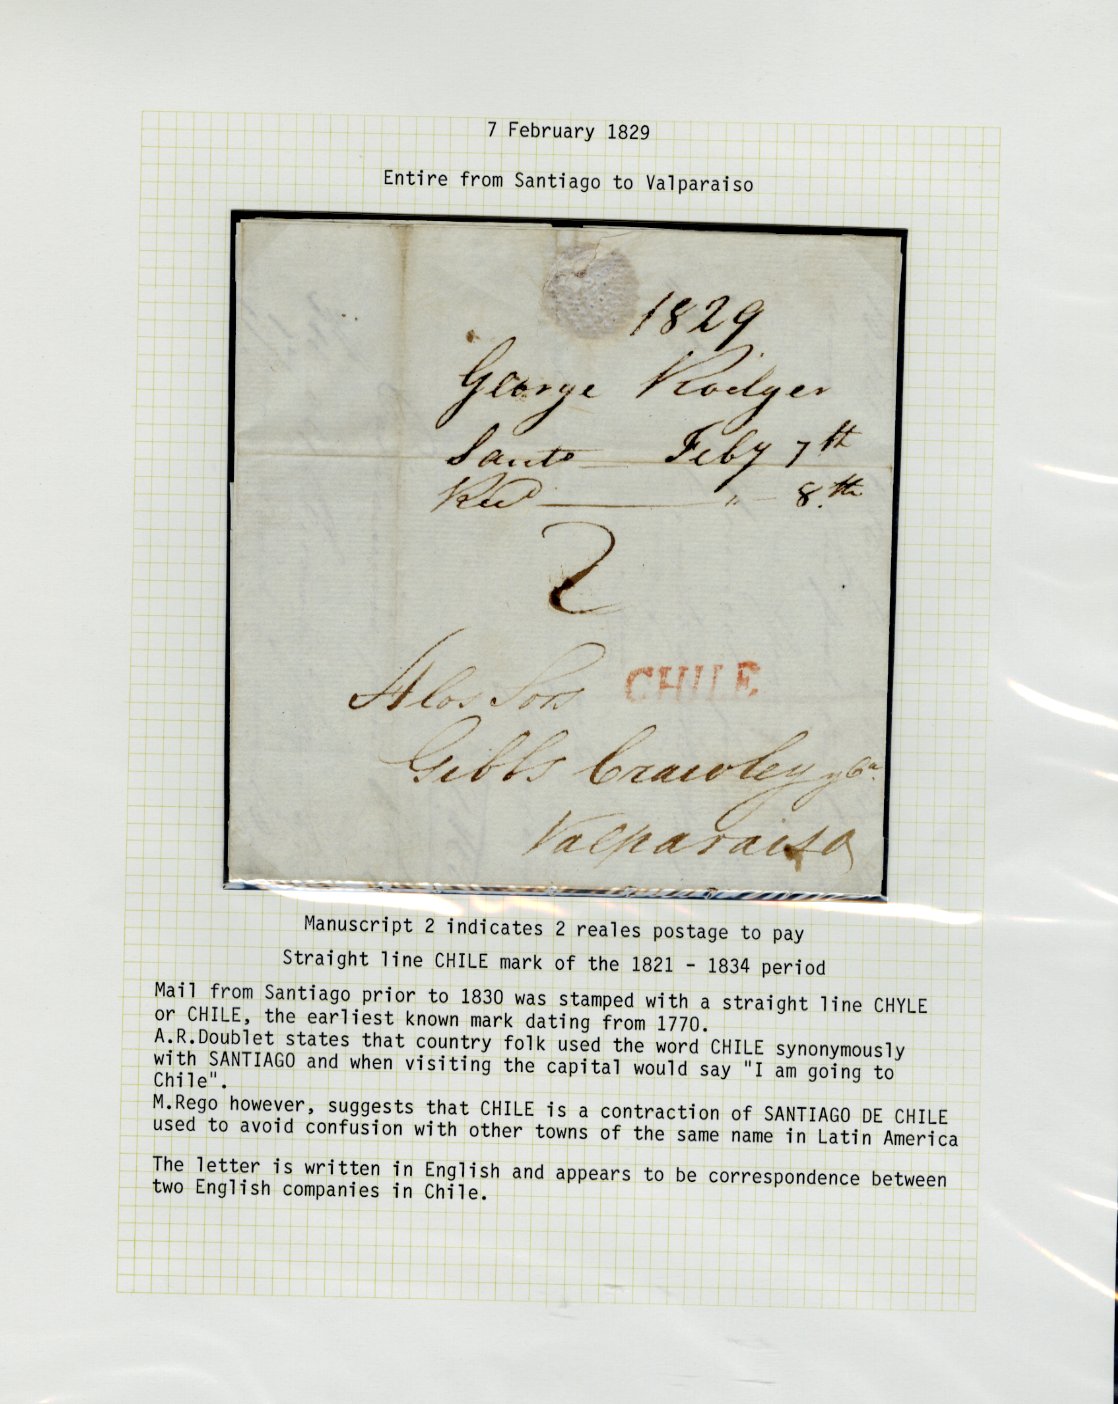 7 February 1829
Entire from Santiago to Valparaiso
1829
George Rodger
Santo Feby 7th
Recd " 8th
2
A los Sors
CHILE
Gibbs Crawley y Ca.
Valparaiso
Manuscript 2 indicates 2 reales postage to pay
Straight line CHILE mark of the 1821 - 1834 period
Mail from Santiago prior to 1830 was stamped with a straight line CHYLE
or CHILE, the earliest known mark dating from 1770.
A.R.Doublet states that country folk used the word CHILE synonymously
with SANTIAGO and when visiting the capital would say "I am going to
Chile".
M.Rego however, suggests that CHILE is a contraction of SANTIAGO DE CHILE
used to avoid confusion with other towns of the same name in Latin America
The letter is written in English and appears to be correspondence between
two English companies in Chile.